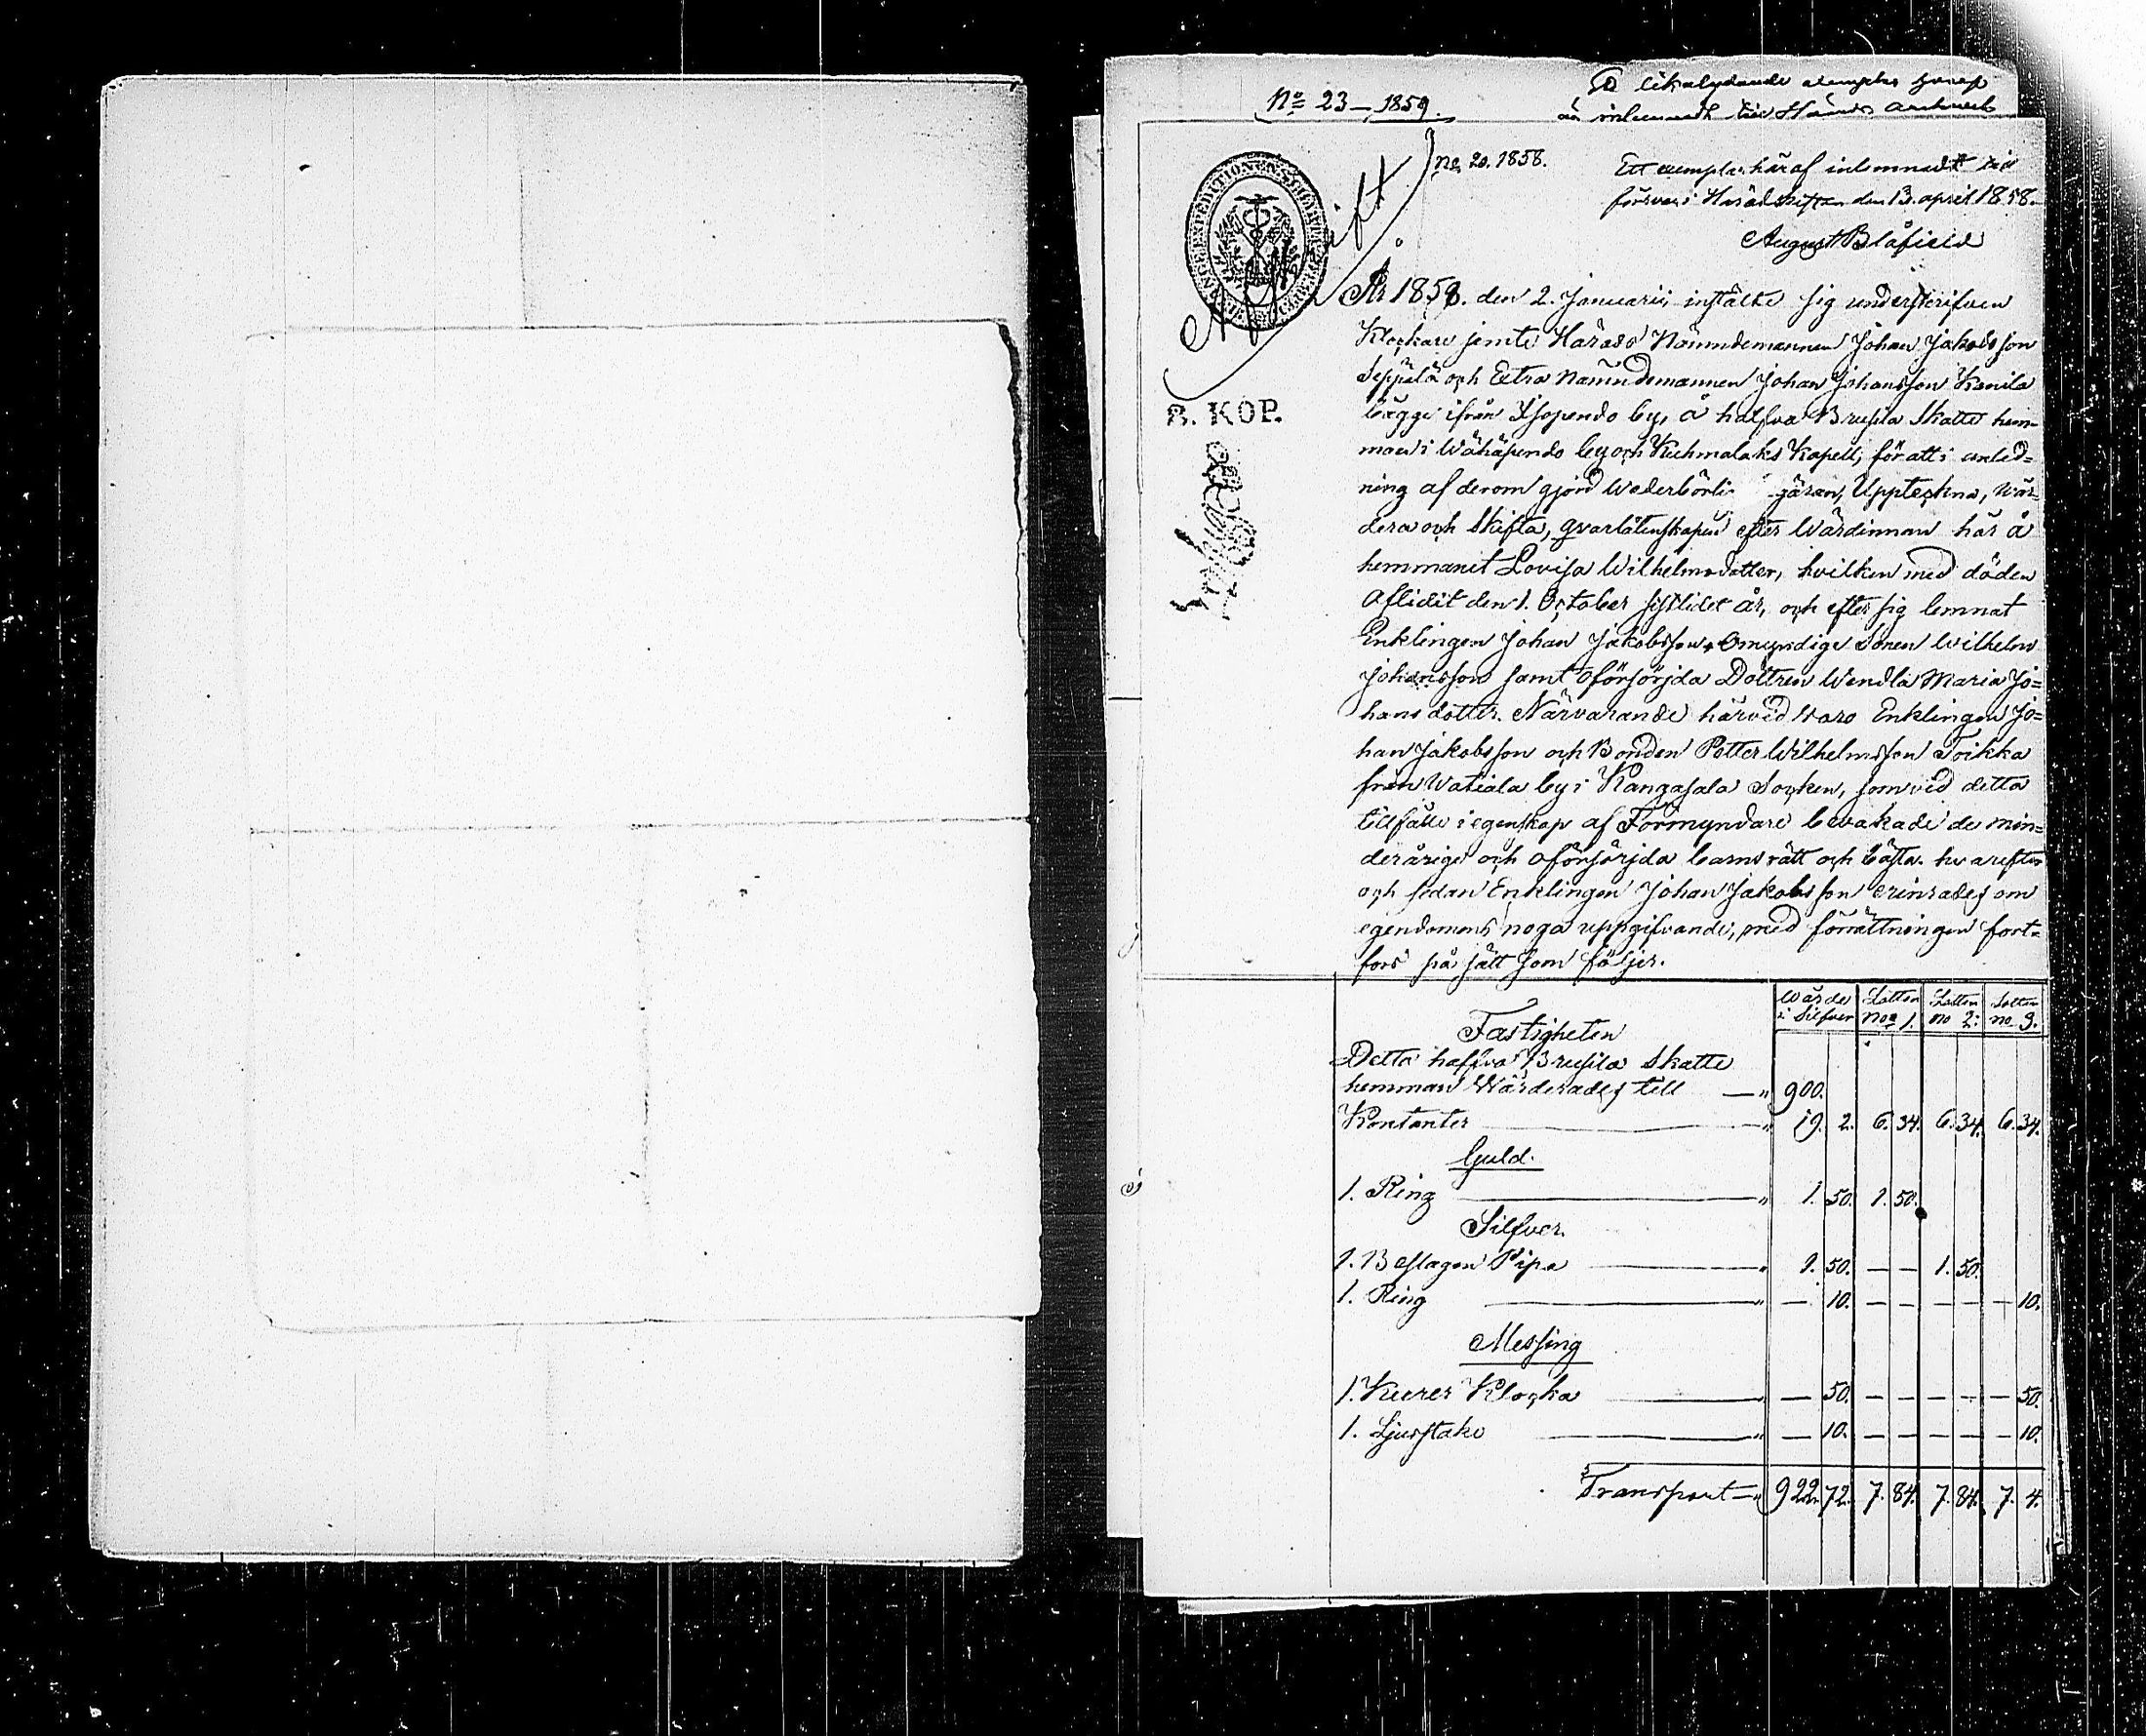 No 23 – 1859.
likalydande
är inlemnadt till Härads
no 20. 1858.
Ett exemplar häraf inlemnadt till
förvar i Häradskistan den 13. april 1858.
August Blåfield
Afskrift
År 1858. den 2. Januarii, instälte sig underskrifven
Klockare jemte Härads Nämndemannen Johan Jakobsson
Seppälä och Extra Nämndemannen Johan Johansson Kanila
bägge ifrån Isopendo by, å halfva Brusila Skatte hem-
8. KOP.
man i Wähäpendo by och Kuhmalaks Kapell, för att i anled-
ning af derom gjord Wederbörli gäran, Uppteckna, wär-
dera och Skifta, qvarlåtenskapen efter Wärdinnan här å
hemmanet Lovisa Wilhelmsdotter, hvilken med döden
Aflidit den 1. October sistlidet år, och efter sig lemnat
Enklingen Johan Jakobsson, Omyndige Sonen Wilhelm
Johansson samt Oförsörjda Dottren Wendla Maria Jo=
hansdotter. Närvarande härvid Woro Enklingen Jo=
han Jakobsson och Bonden Petter Wilhelmsson Toikka
från Watiala by i Kangasala Socken, som vid detta
tillfälle i egenskap af Förmyndare bevakade de min=
derårige och oförsörjda barns rätt och bästa. hvarefter
och sedan Enklingen Johan Jakobsson erinrades om
egendomens noga uppgifvande, med förrättningen fort=
fors på sätt som följer.
Wärde i Silfver Lotten No 1. Lotten no 2: Lotten no 3.
Fastigheten
Detta halfva Brusila Skatte
hemman Wärderades till — " 900.
Kontanter " 19. 2. 6. 34. 6. 34. 6. 34.
Guld.
1. Ring " 1. 50. 1. 50.
Silfver.
1. Beslagen Pipa " 1. 50. — — 1. 50.
1. Ring " — 10. — — — — — 10.
Messing
1. Kurer Klocka " — 50. — — — — — 50.
1. Ljusstake " — 10. — — — — — 10.
Transport — " 922. 72. 7. 84. 7. 84. 7. 4.